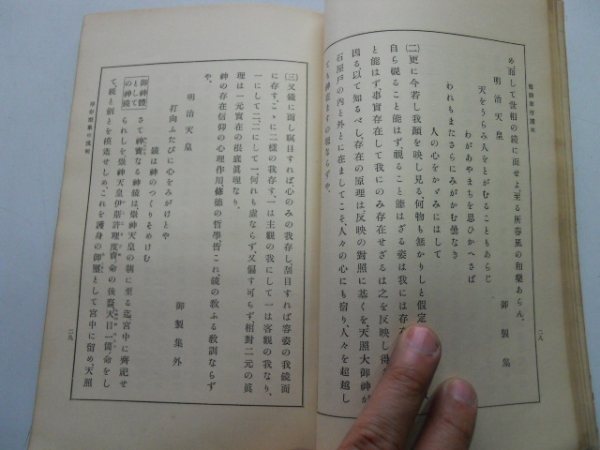 め、而して世相の鏡に面せよ、至る所春風の和樂あらん。
明治天皇
御製集
天をうらみ人をとがむることもあらじ
わがあやまちを思ひかへさば
われもまたさらにみがかむ曇なき
人の心をかゞみにはして
(二)更に今若し我顏を映し見る、何物も無かりしと假定
自ら視ること能はず、視ること能はざる姿は我には存
と能はず、事實存在して我にのみ存在せざるは之を反映し得
因る、以て知るべし、存在の原理は、反映の對照に基くを、天照大御神が
石屋戸の内と外とに在ましてこそ、人々の心にも宿り、人々を超越し
ても神在ますの知ならずや。
二八
(三)又鏡に面し瞑目すれば心のみの我存し、刮目すれば容姿の我鏡面
に存す、こゝに二樣の我存す、一は主觀の我にして一は客觀の我なり、
一にして二、二にして一、何れも虚ならず、又偏す可らず、相對二元の眞
理は一元實在の根底眞理なり。
神の存在信仰の心理作用修德の哲學皆これ鏡の敎ふる敎訓ならず
や。
明治天皇
御製集外
打向ふたびに心をみがけとや
鏡は神のつくりそめけむ
御神體としての神鏡
さて神實なる神鏡は、崇神天皇の朝に至る迄宮中に齊祀せ
られしを、崇神天皇伊斯許理度賣命の後裔天目一箇命をし
て、鏡と劍とを模造せしめ、これを護身の御璽として宮中に留め、天照
二九